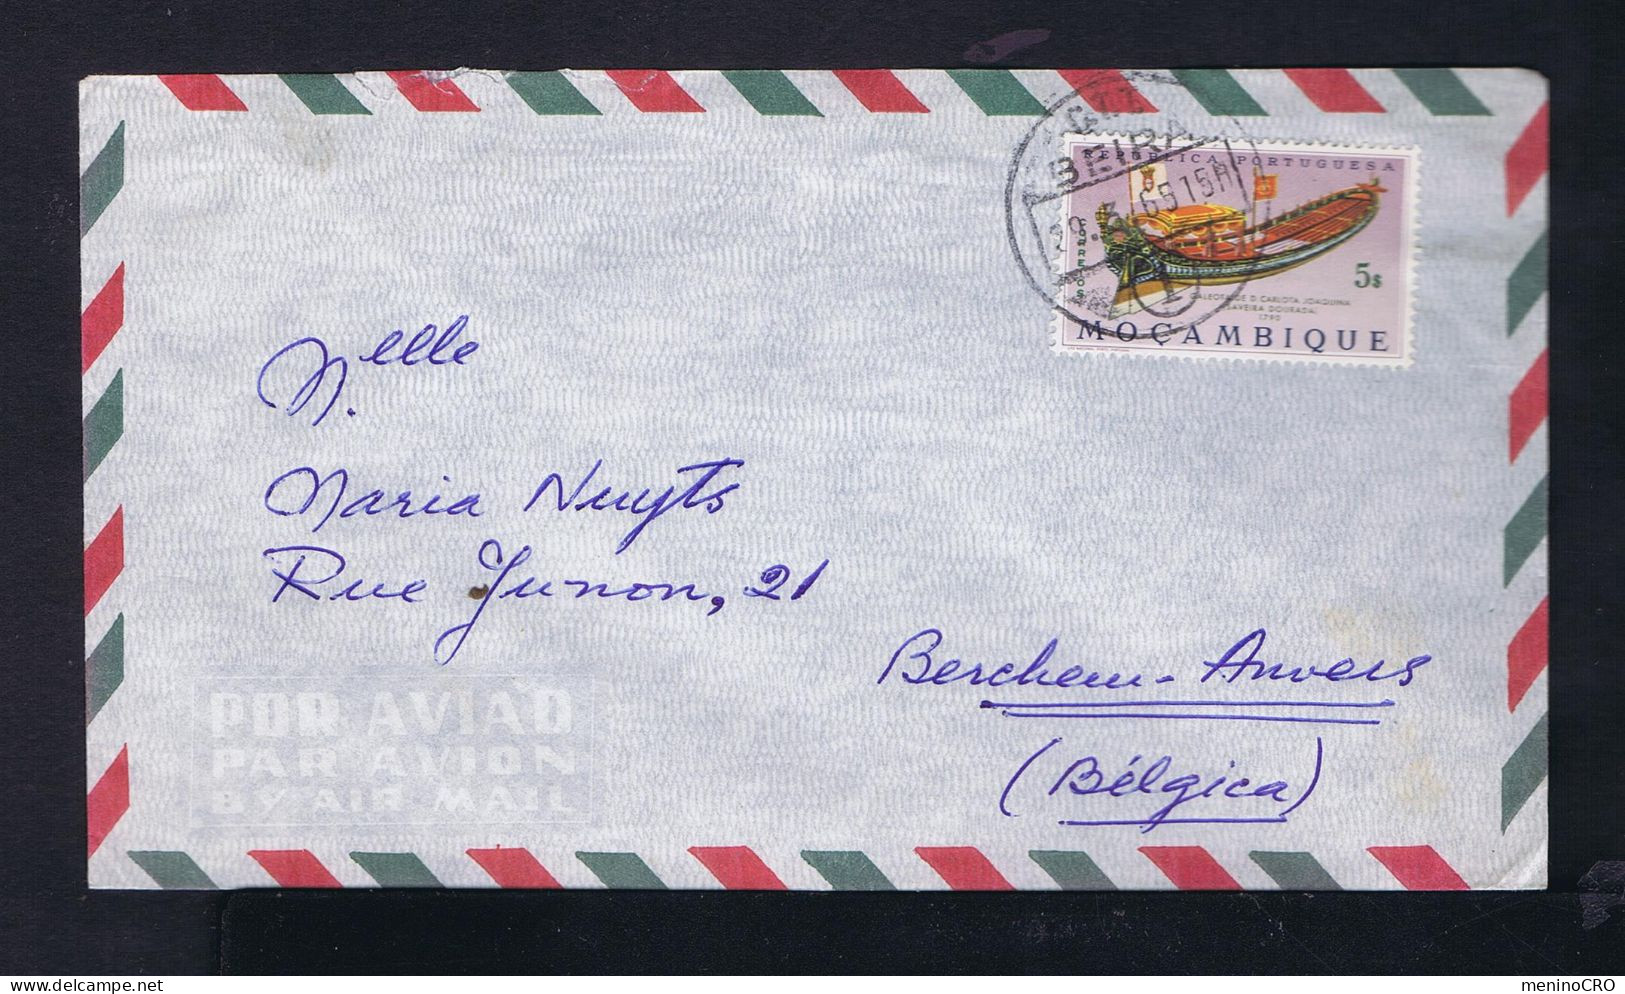 BEIRA
REPÚBLICA PORTUGUESA
CORREIOS
5$
GALEOTA DE D. CARLOTA JOAQUINA
(SAVEIRA DOURADA)
1790
MOÇAMBIQUE
M.elle
Maria Nuyts
Rue Junon, 21
Berchem - Anvers
(Bélgica)
POR AVIÃO
PAR AVION
BY AIR MAIL
meninoCRO